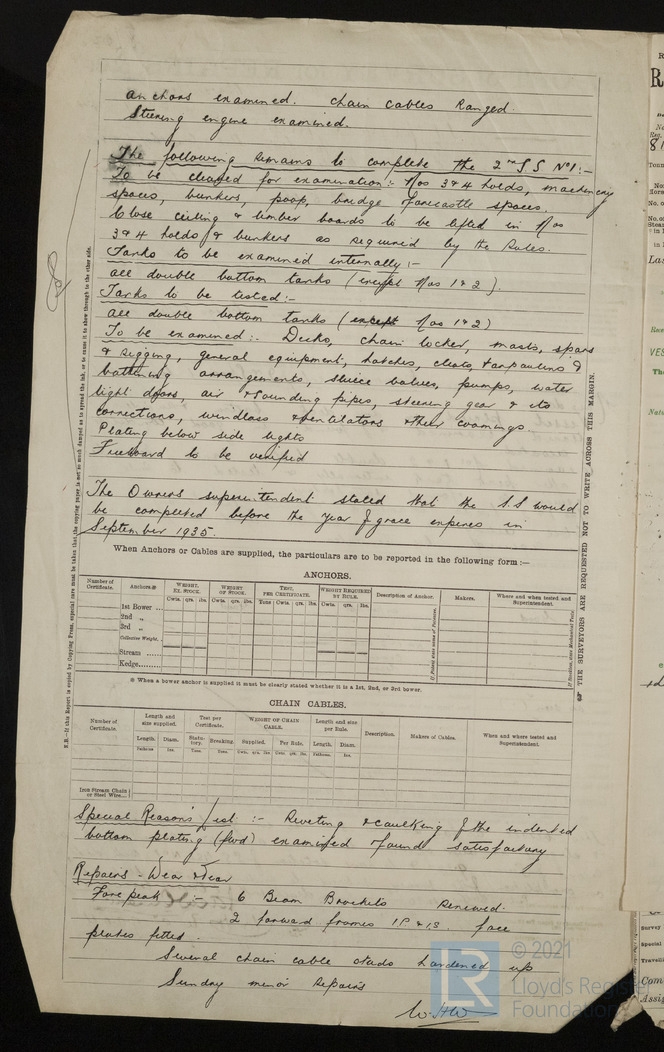 anchors examined. Chain cables Ranged.
Steering engine examined.
The following remains to complete the 2nd S S No1:-
To be cleaned for examination:- Nos 3 & 4 holds, machinery
spaces, bunkers, poop, bridge forecastle spaces.
Close ceiling & limber boards to be lifted in Nos
3 & 4 holds & bunkers as required by the Rules.
Tanks to be examined internally:-
all double bottom tanks (except Nos 1 & 2).
Tanks to be tested:-
all double bottom tanks (except Nos 1 & 2)
To be examined:- Decks, chain locker, masts, spars
& rigging, general equipment, hatches, cleats, tarpaulins &
battening arrangements, sluice valves, pumps, water
tight doors, air & sounding pipes, steering gear & its
connections, windlass & ventilators & their coamings.
Plating below side lights
Freeboard to be verified
The Owners superintendent stated that the S.S would
be completed before the year of grace expires in
September 1935.
When Anchors or Cables are supplied, the particulars are to be reported in the following form:—
ANCHORS.
Number of Certificate. Anchors.* WEIGHT, EX. STOCK. WEIGHT OF STOCK. TEST, PER CERTIFICATE. WEIGHT REQUIRED BY RULE. Description of Anchor. Makers. Where and when tested and Superintendent.
Cwts. qrs. lbs. Cwts. qrs. lbs. Tons Cwts. qrs. lbs. Cwts. qrs. lbs.
1st Bower ...
2nd „
3rd „
Collective Weight.
Stream ...
Kedge.......
* When a bower anchor is supplied it must be clearly stated whether it is a 1st, 2nd, or 3rd bower.
CHAIN CABLES.
Number of Certificate. Length and size supplied. Test per Certificate. WEIGHT OF CHAIN CABLE. Length and size per Rule. Description. Makers of Cables. When and where tested and Superintendent.
Length. Diam. Statutory. Breaking. Supplied. Per Rule. Length. Diam.
Fathoms Ins. Tons. Tons. Cwts. qrs. lbs Cwts. qrs. lbs. Fathoms. Ins.
Iron Stream Chain or Steel Wire...
Special Reasons list :- Riveting & caulking of the indented
bottom plating (fwd) examined & found satisfactory
Repairs - Wear & Tear
Fore peak :- 6 Beam Brackets renewed.
2 forward frames 1P & 1S. face
plates fitted
Several chain cable studs hardened up
Sunday minor repairs
W.H.W.
THE SURVEYORS ARE REQUESTED NOT TO WRITE ACROSS THIS MARGIN.
N.B.—If this Report is copied by Copying Press, especial care must be taken that the copying paper is not so much damped as to spread the ink, or to cause it to show through to the other side.
LR
© 2021
Lloyd's Register
Foundation